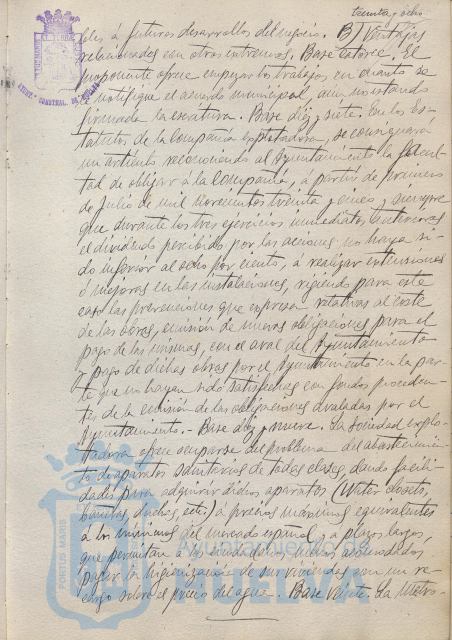 treinta y ocho
bles a futuros desarrollos del negocio. B) Ventajas
relacionadas con otros extremos. Base catorce. El
proponente ofrece empezar los trabajos en cuanto se
le notifique el acuerdo municipal, aun no estando
firmada la escritura. Base diez y siete. En los Es-
tatutos de la Compañía explotadora, se consignará
un artículo reconociendo al Ayuntamiento la facul-
tad de obligar á la Compañía, á partir de primero
de Julio de mil novecientos treinta y cinco, siempre
que durante los tres ejercicios inmediatos anteriores
el dividendo percibido por las acciones no haya si-
do inferior al ocho por ciento, á realizar extensiones
ó mejoras en las instalaciones, rigiendo para este
caso las prevenciones que expresa relativas al coste
de las obras, emisión de nuevas obligaciones para el
pago de las mismas, con el aval del Ayuntamiento
y pago de dichas obras por el Ayuntamiento en la par-
te que no hayan sido satisfechas con fondos proceden-
tes de la emisión de las obligaciones avaladas por el
Ayuntamiento.- Base diez y nueve. La Sociedad explo-
tadora ofrece ocuparse del problema del abastecimien-
to de aparatos sanitarios de todas clases, dando facili-
dades para adquirir dichos aparatos (Water closets,
bañeras, duchas, etc) á precios máximos equivalentes
á los mínimos del mercado español, y á plazos largos,
que permitan á los ciudadanos menos acomodados
pagar la higienización de sus viviendas con un re-
cargo sobre el precio del agua. Base veinte. La Muni-
AYUNTAMIENTO
HUELVA
PORTUS MARIS